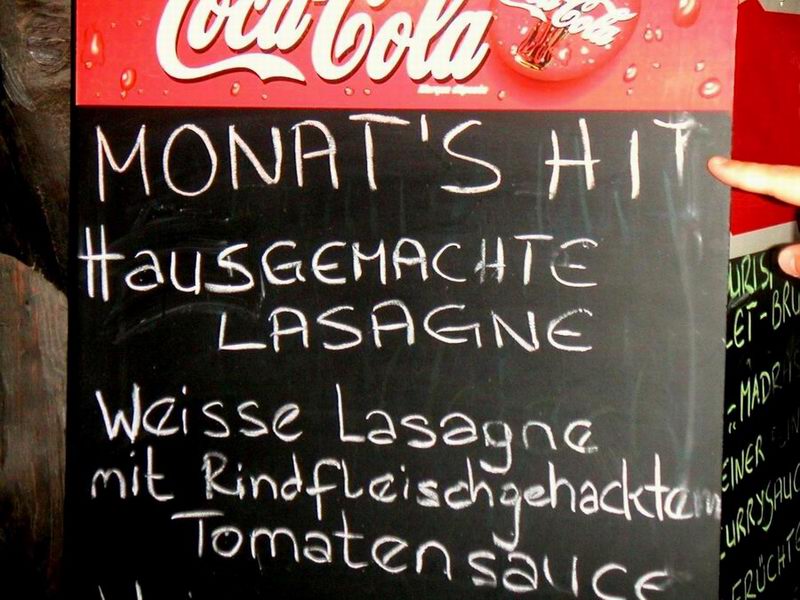 Coca-Cola
Coca-Cola
MONAT'S HIT
HAUSGEMACHTE
LASAGNE
Weisse Lasagne
mit Rindfleischgehacktem
Tomatensauce
LET-BRU
-MADR
EINER
URRYSAUC
FRÜCHTE